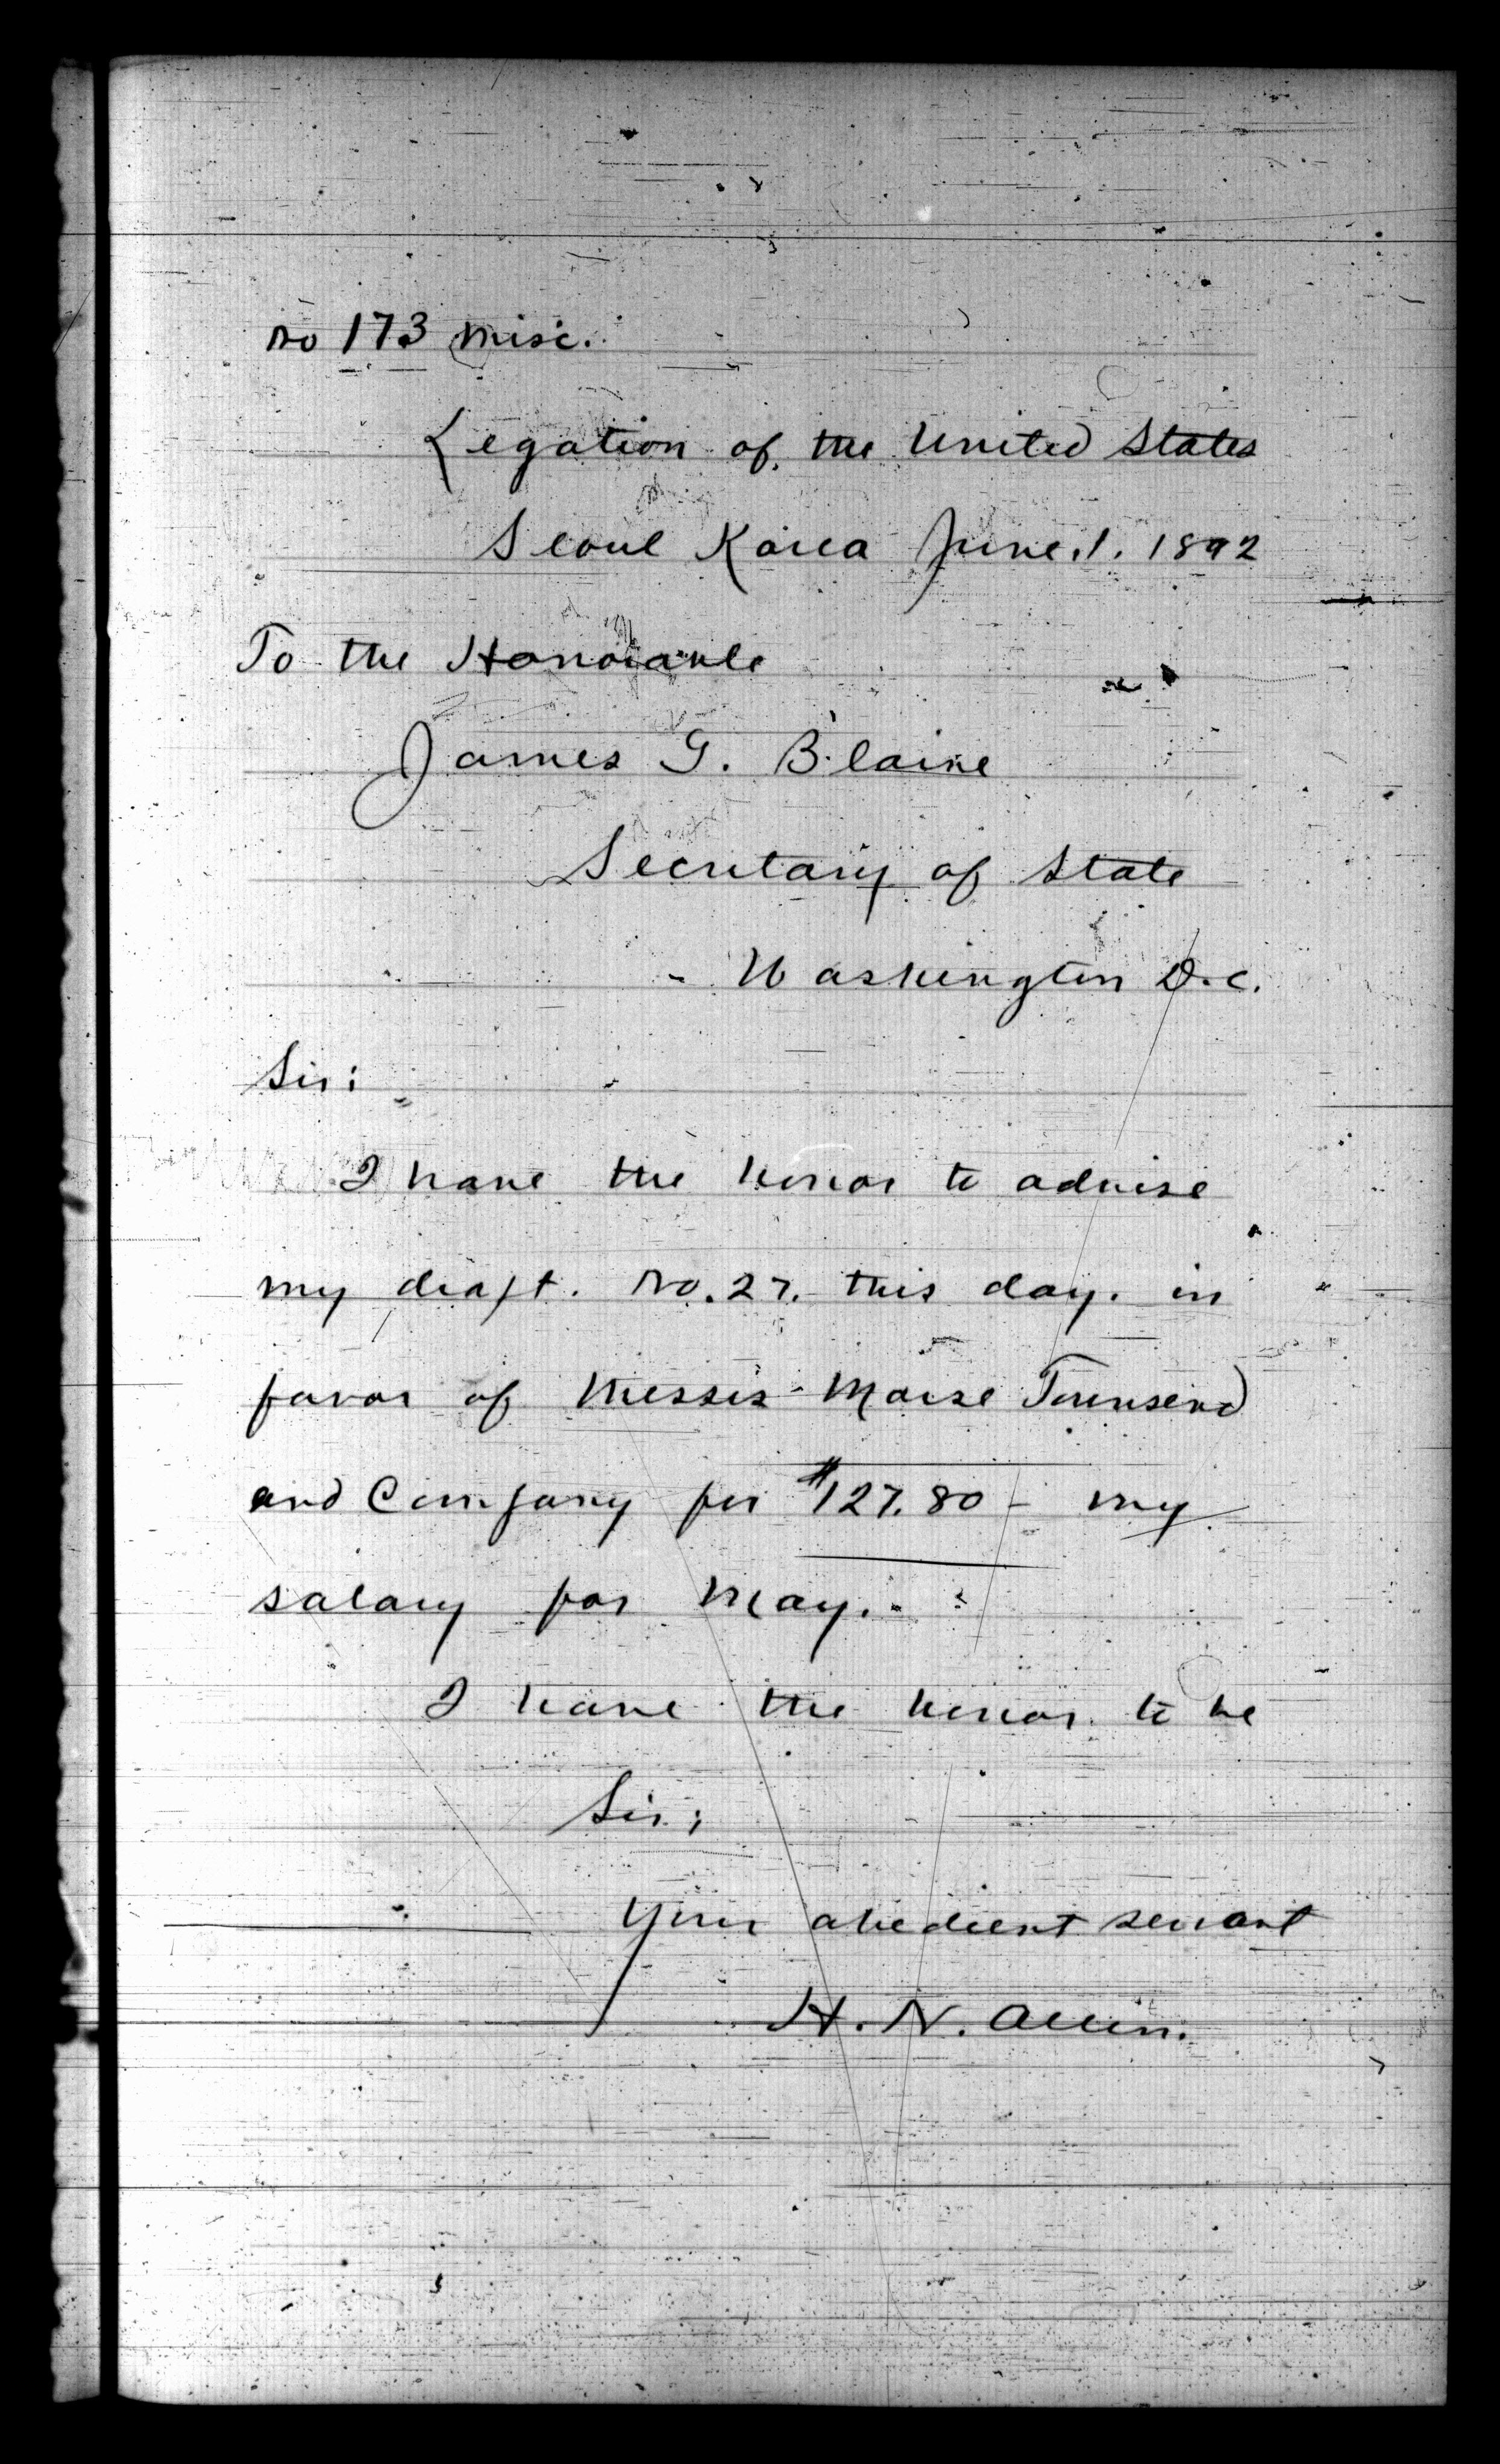 No 173 Misc.
Legation of the United States
Seoul Korea June 1. 1892
To the Honorable
James G. Blaine
Secretary of State
Washington D.C.
Sir:
I have the honor to advise
my draft. No. 27. this day. in
favor of Messrs Morse Townsend
and Company for $127.80 - my
salary for May.
I have the honor to be
Sir;
Your obedient servant
H. N. Allen.